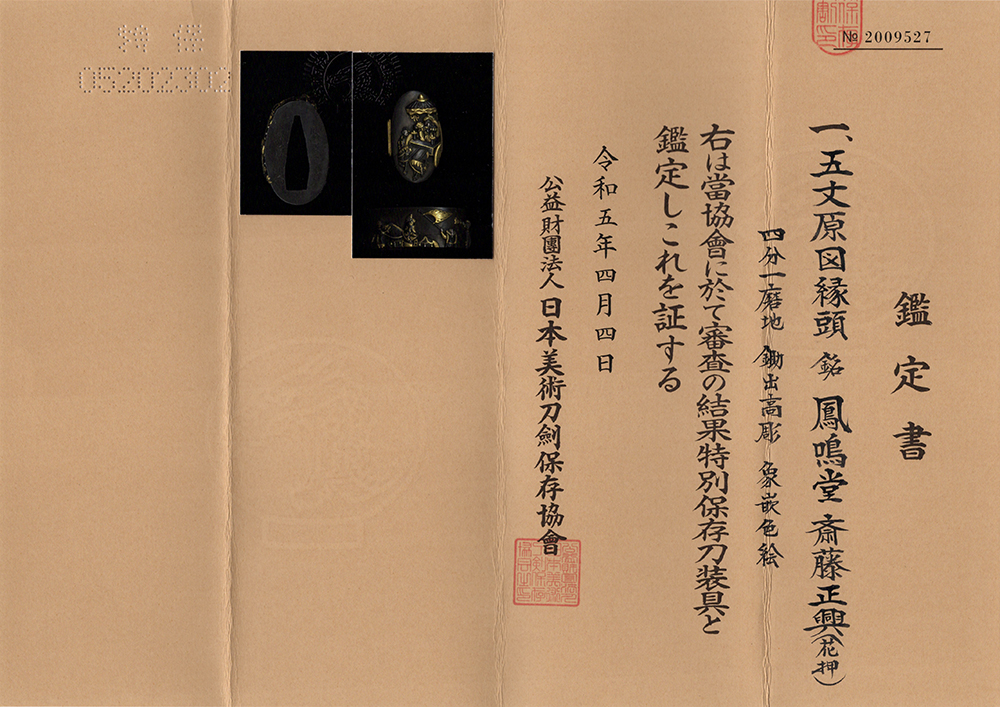 № 2009527
鑑定書
一、五丈原図縁頭 銘 鳳鳴堂 斎藤正興(花押)
四分一磨地 鋤出高彫 象嵌色絵
右は當協會に於て審査の結果特別保存刀装具と
鑑定しこれを証する
令和五年四月四日
公益財團法人 日本美術刀劍保存協會
特保
05202302